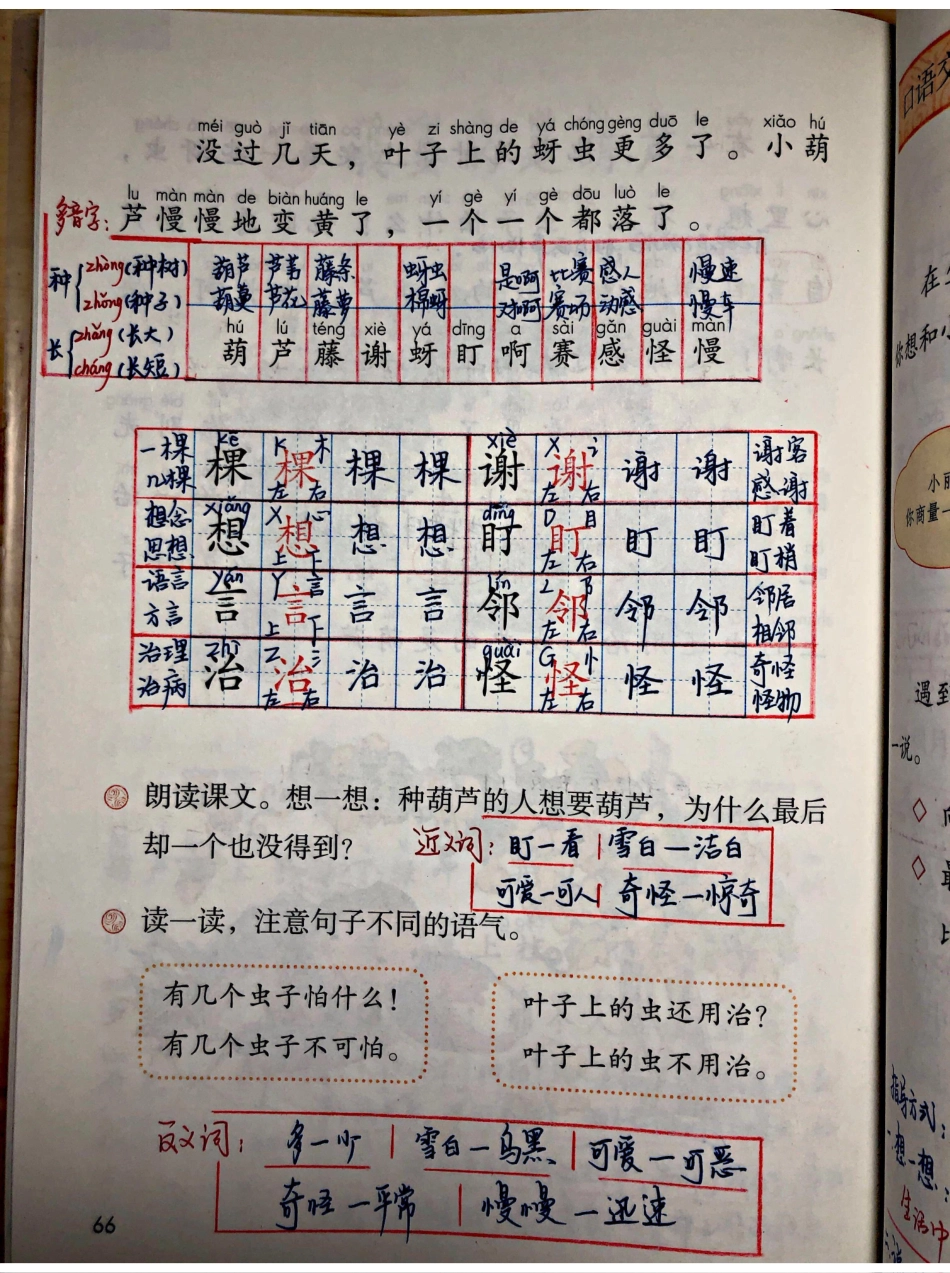 méi guò jǐ tiān yè zi shàng de yá chóng gèng duō le xiǎo hú
没过几天，叶子上的蚜虫更多了。小葫
lu màn màn de biàn huáng le yí gè yí gè dōu luò le
多音字：芦慢慢地变黄了，一个一个都落了。
种 zhòng(种树) 葫芦 芦苇 藤条 蚜虫 是啊 比赛 感人 慢速
zhǒng(种子) 葫蔓 芦花 藤萝 棉蚜 对啊 赛场 动感 慢车
长 zhǎng(长大) hú lú téng xiè yá dīng a sài gǎn guài màn
cháng(长短) 葫 芦 藤 谢 蚜 盯 啊 赛 感 怪 慢
一棵 kē K 木 xiè X 讠 谢客
棵 棵 棵 棵 谢 谢 谢 谢
几棵 左 右 左 右 感谢
想念 xiǎng X 心 dīng D 目 盯着
想 想 想 想 盯 盯 盯 盯
思想 上 下 左 右 盯梢
语言 yán Y 言 lín L 阝 邻居
言 言 言 言 邻 邻 邻 邻
方言 上 下 左 右 相邻
治理 zhì Z 氵 guài G 忄 奇怪
治 治 治 治 怪 怪 怪 怪
治病 左 右 左 右 怪物
朗读课文。想一想：种葫芦的人想要葫芦，为什么最后
却一个也没得到？
近义词：盯—看 雪白—洁白
可爱—可人 奇怪—惊奇
读一读，注意句子不同的语气。
有几个虫子怕什么！
有几个虫子不可怕。
叶子上的虫还用治？
叶子上的虫不用治。
反义词：多—少 雪白—乌黑 可爱—可恶
奇怪—平常 慢慢—迅速
66
口语交
在生
你想和小
小丽
你商量一
遇到
一说。
指导方式：
想一想：
生活中